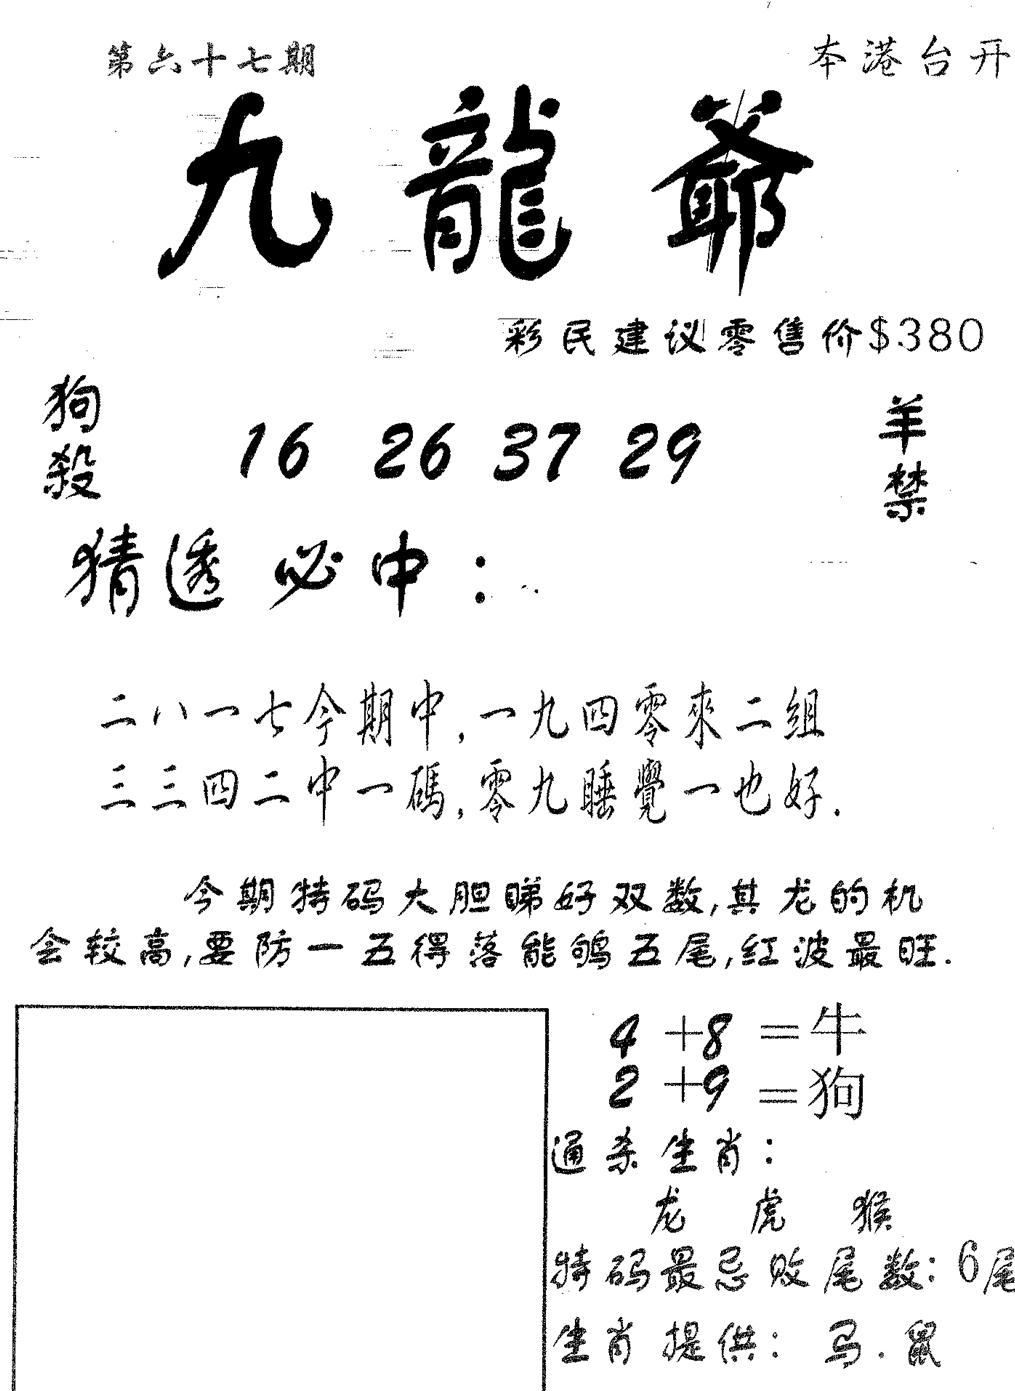 第六十七期
本港台开
九龍爺
彩民建议零售价$380
狗殺
16 26 37 29
羊禁
猜透必中：
二八一七今期中,一九四零來二組
三三四二中一碼,零九睡覺一也好.
今期特码大胆睇好双数,其龙的机
会较高,要防一五得落能鸲五尾,红波最旺.
4+8=牛
2+9=狗
通杀生肖：
龙 虎 猴
特码最忌败尾数：6尾
生肖提供：马.鼠